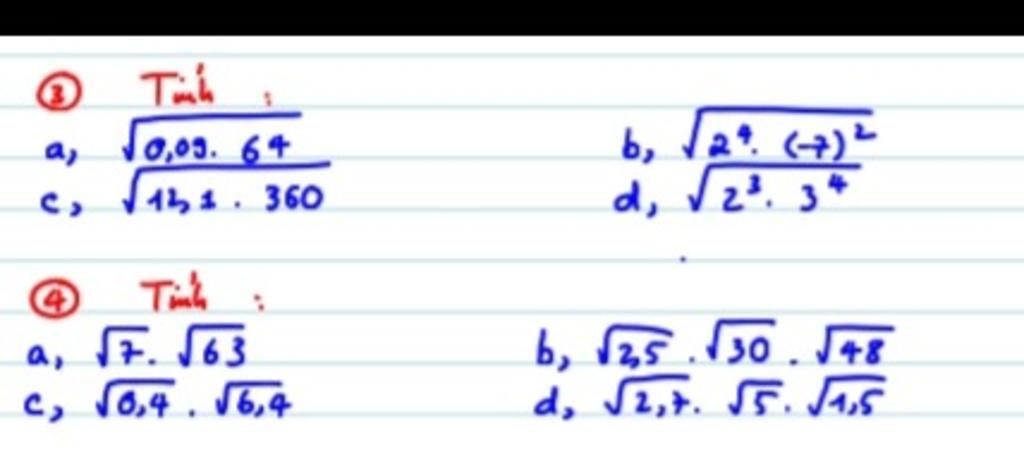 ③ Tính :
a, √0,09. 64 b, √2⁴. (-7)²
c, √12,1 . 360 d, √2³. 3⁴
④ Tính :
a, √7. √63 b, √2,5 . √30 . √48
c, √0,4 . √6,4 d, √2,7. √5. √1,5